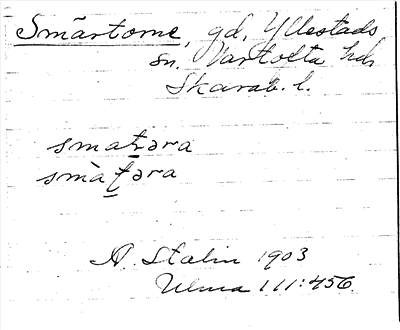 Smärtorne, gd, Yllestads
sn. Vartofta hd,
Skarab. l.
smaṯəra
smàṯəra
A. Stalin 1903
Ulma 111:456.